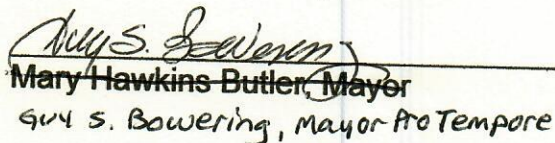 Guy S. Bowering
Mary Hawkins Butler, Mayor
Guy S. Bowering, Mayor Pro Tempore